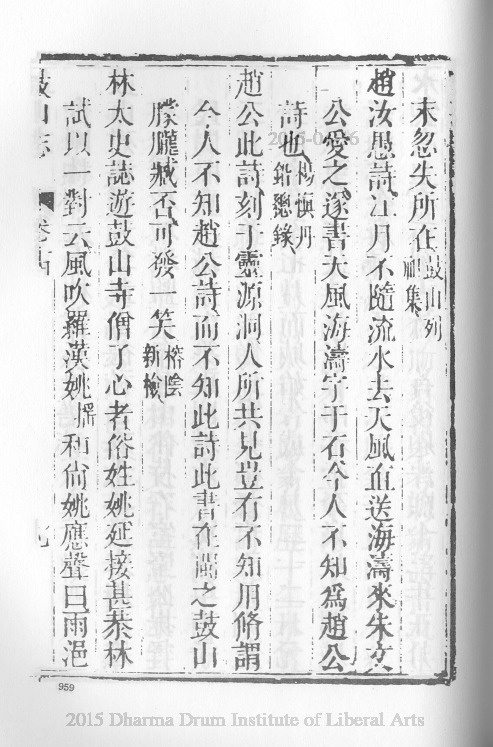 末忽失所在鼓山列祖集
趙汝愚詩江月不隨流水去天風直送海濤來朱文
公愛之遂書天風海濤字于石今人不知為趙公
詩也楊慎丹鉛總錄
趙公此詩刻于靈源洞人所共見豈有不知用脩謂
今人不知趙公詩而不知此詩此書在閩之鼓山
朦朧臧否可發一笑榕陰新檢
林太史誌遊鼓山寺僧了心者俗姓姚延接甚恭林
試以一對云風吹羅漢姚搖和尚姚應聲曰雨浥
鼓山志
卷之
959
2015 Dharma Drum Institute of Liberal Arts